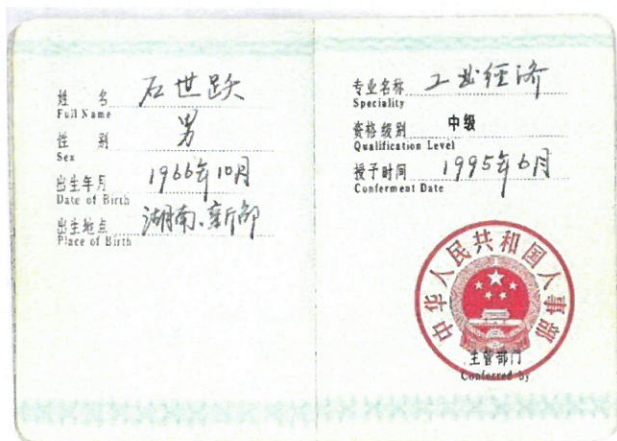 姓 名 石世跃
Full Name
性 别 男
Sex
出生年月 1966年10月
Date of Birth
出生地点 湖南、新邵
Place of Birth
专业名称 工业经济
Speciality
资格级别 中级
Qualification Level
授予时间 1995年6月
Conferment Date
中华人民共和国人事部
主管部门
Conferred by